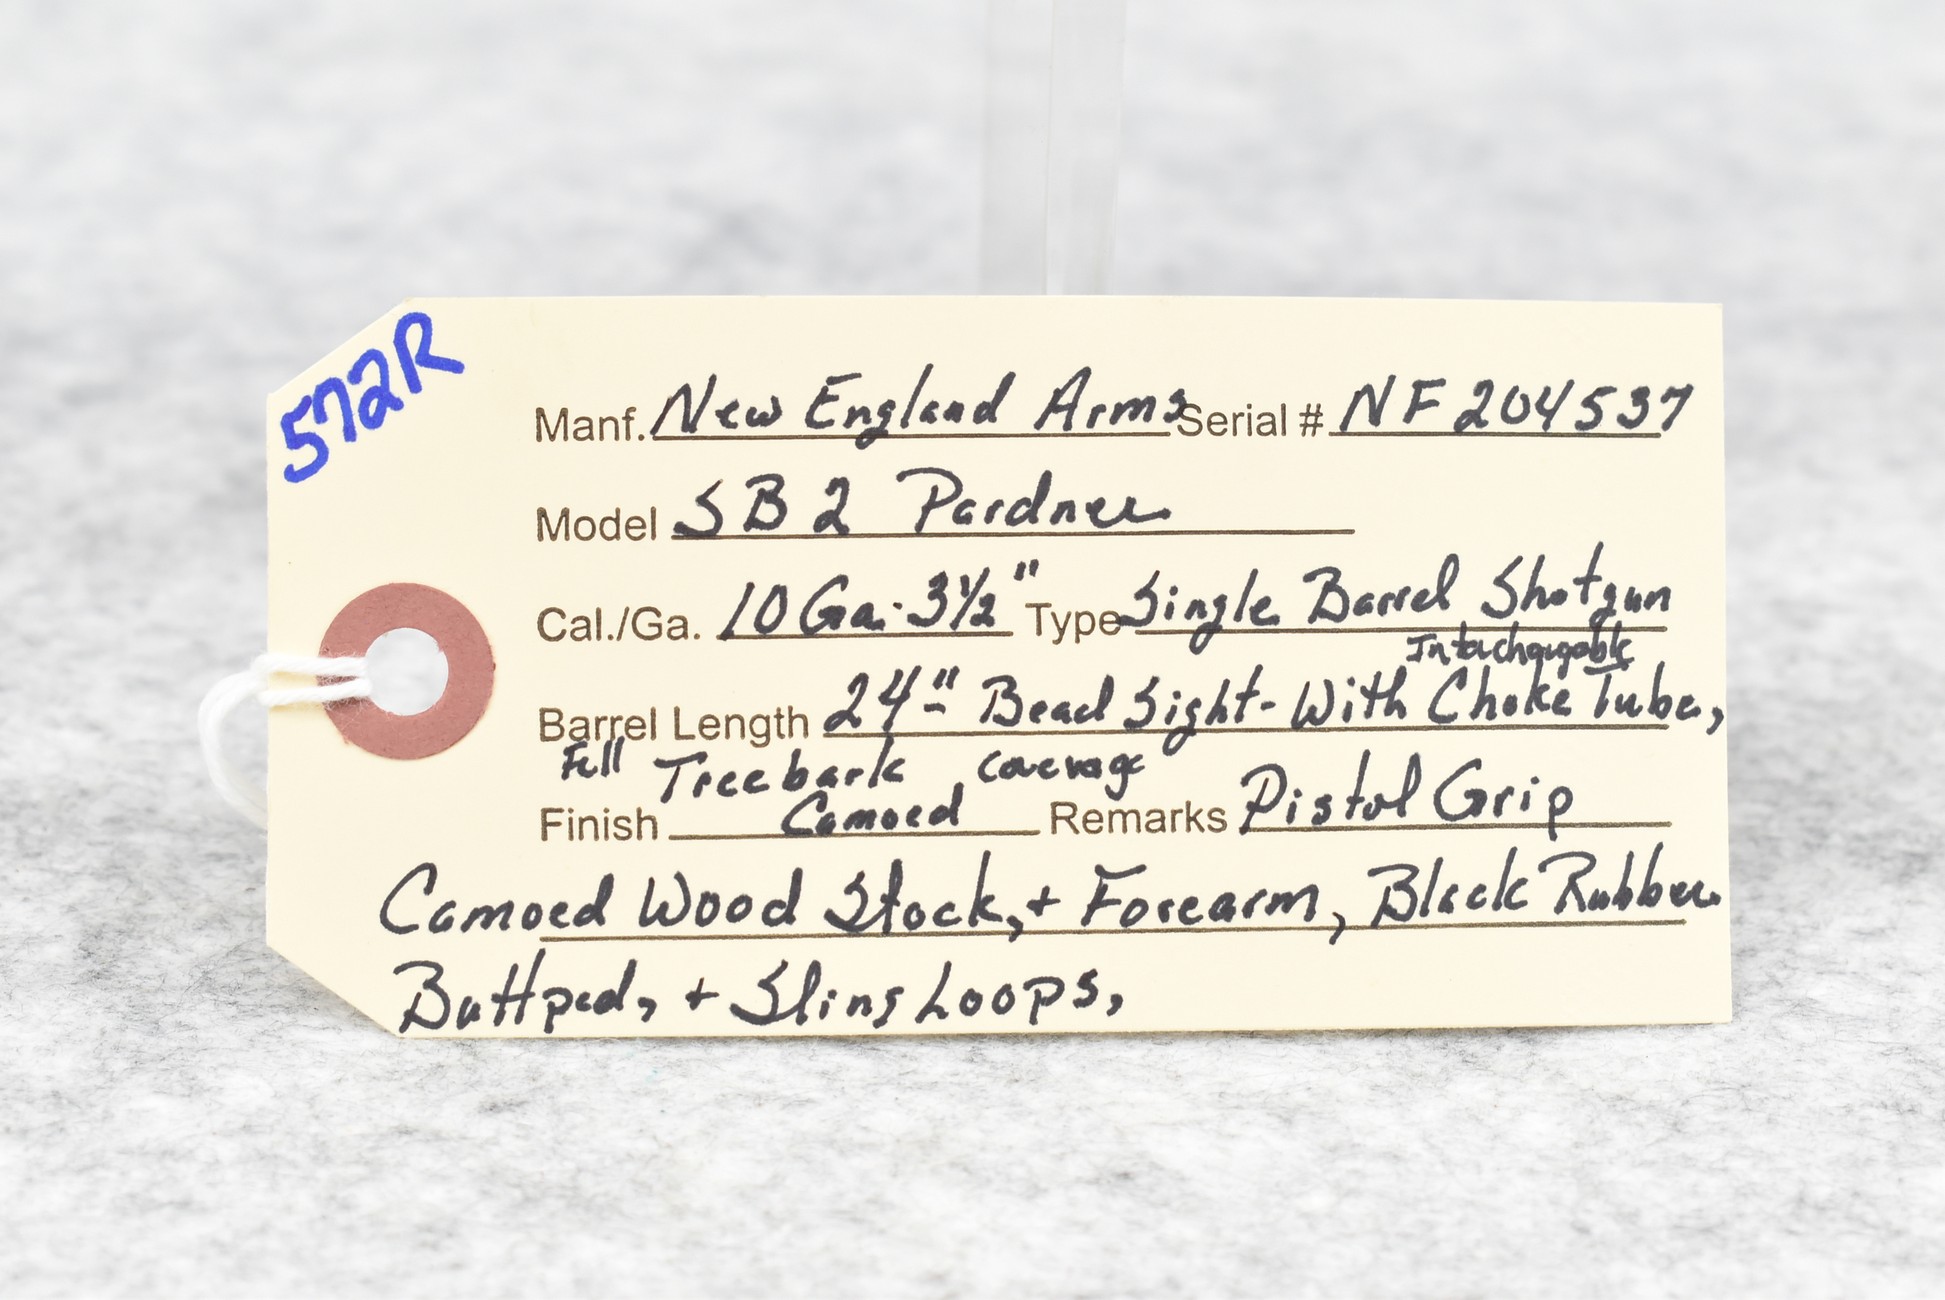 572R
Manf. New England Arms Serial # NF204537
Model SB2 Pardner
Cal./Ga. 10 Ga. 3½" Type Single Barrel Shotgun
Intachgagable
Barrel Length 24" Bead Sight - With Choke Tube,
Full Treebark coverage
Finish Camoed Remarks Pistol Grip
Camoed Wood Stock, + Forearm, Black Rubber
Buttpad, + Sling Loops,